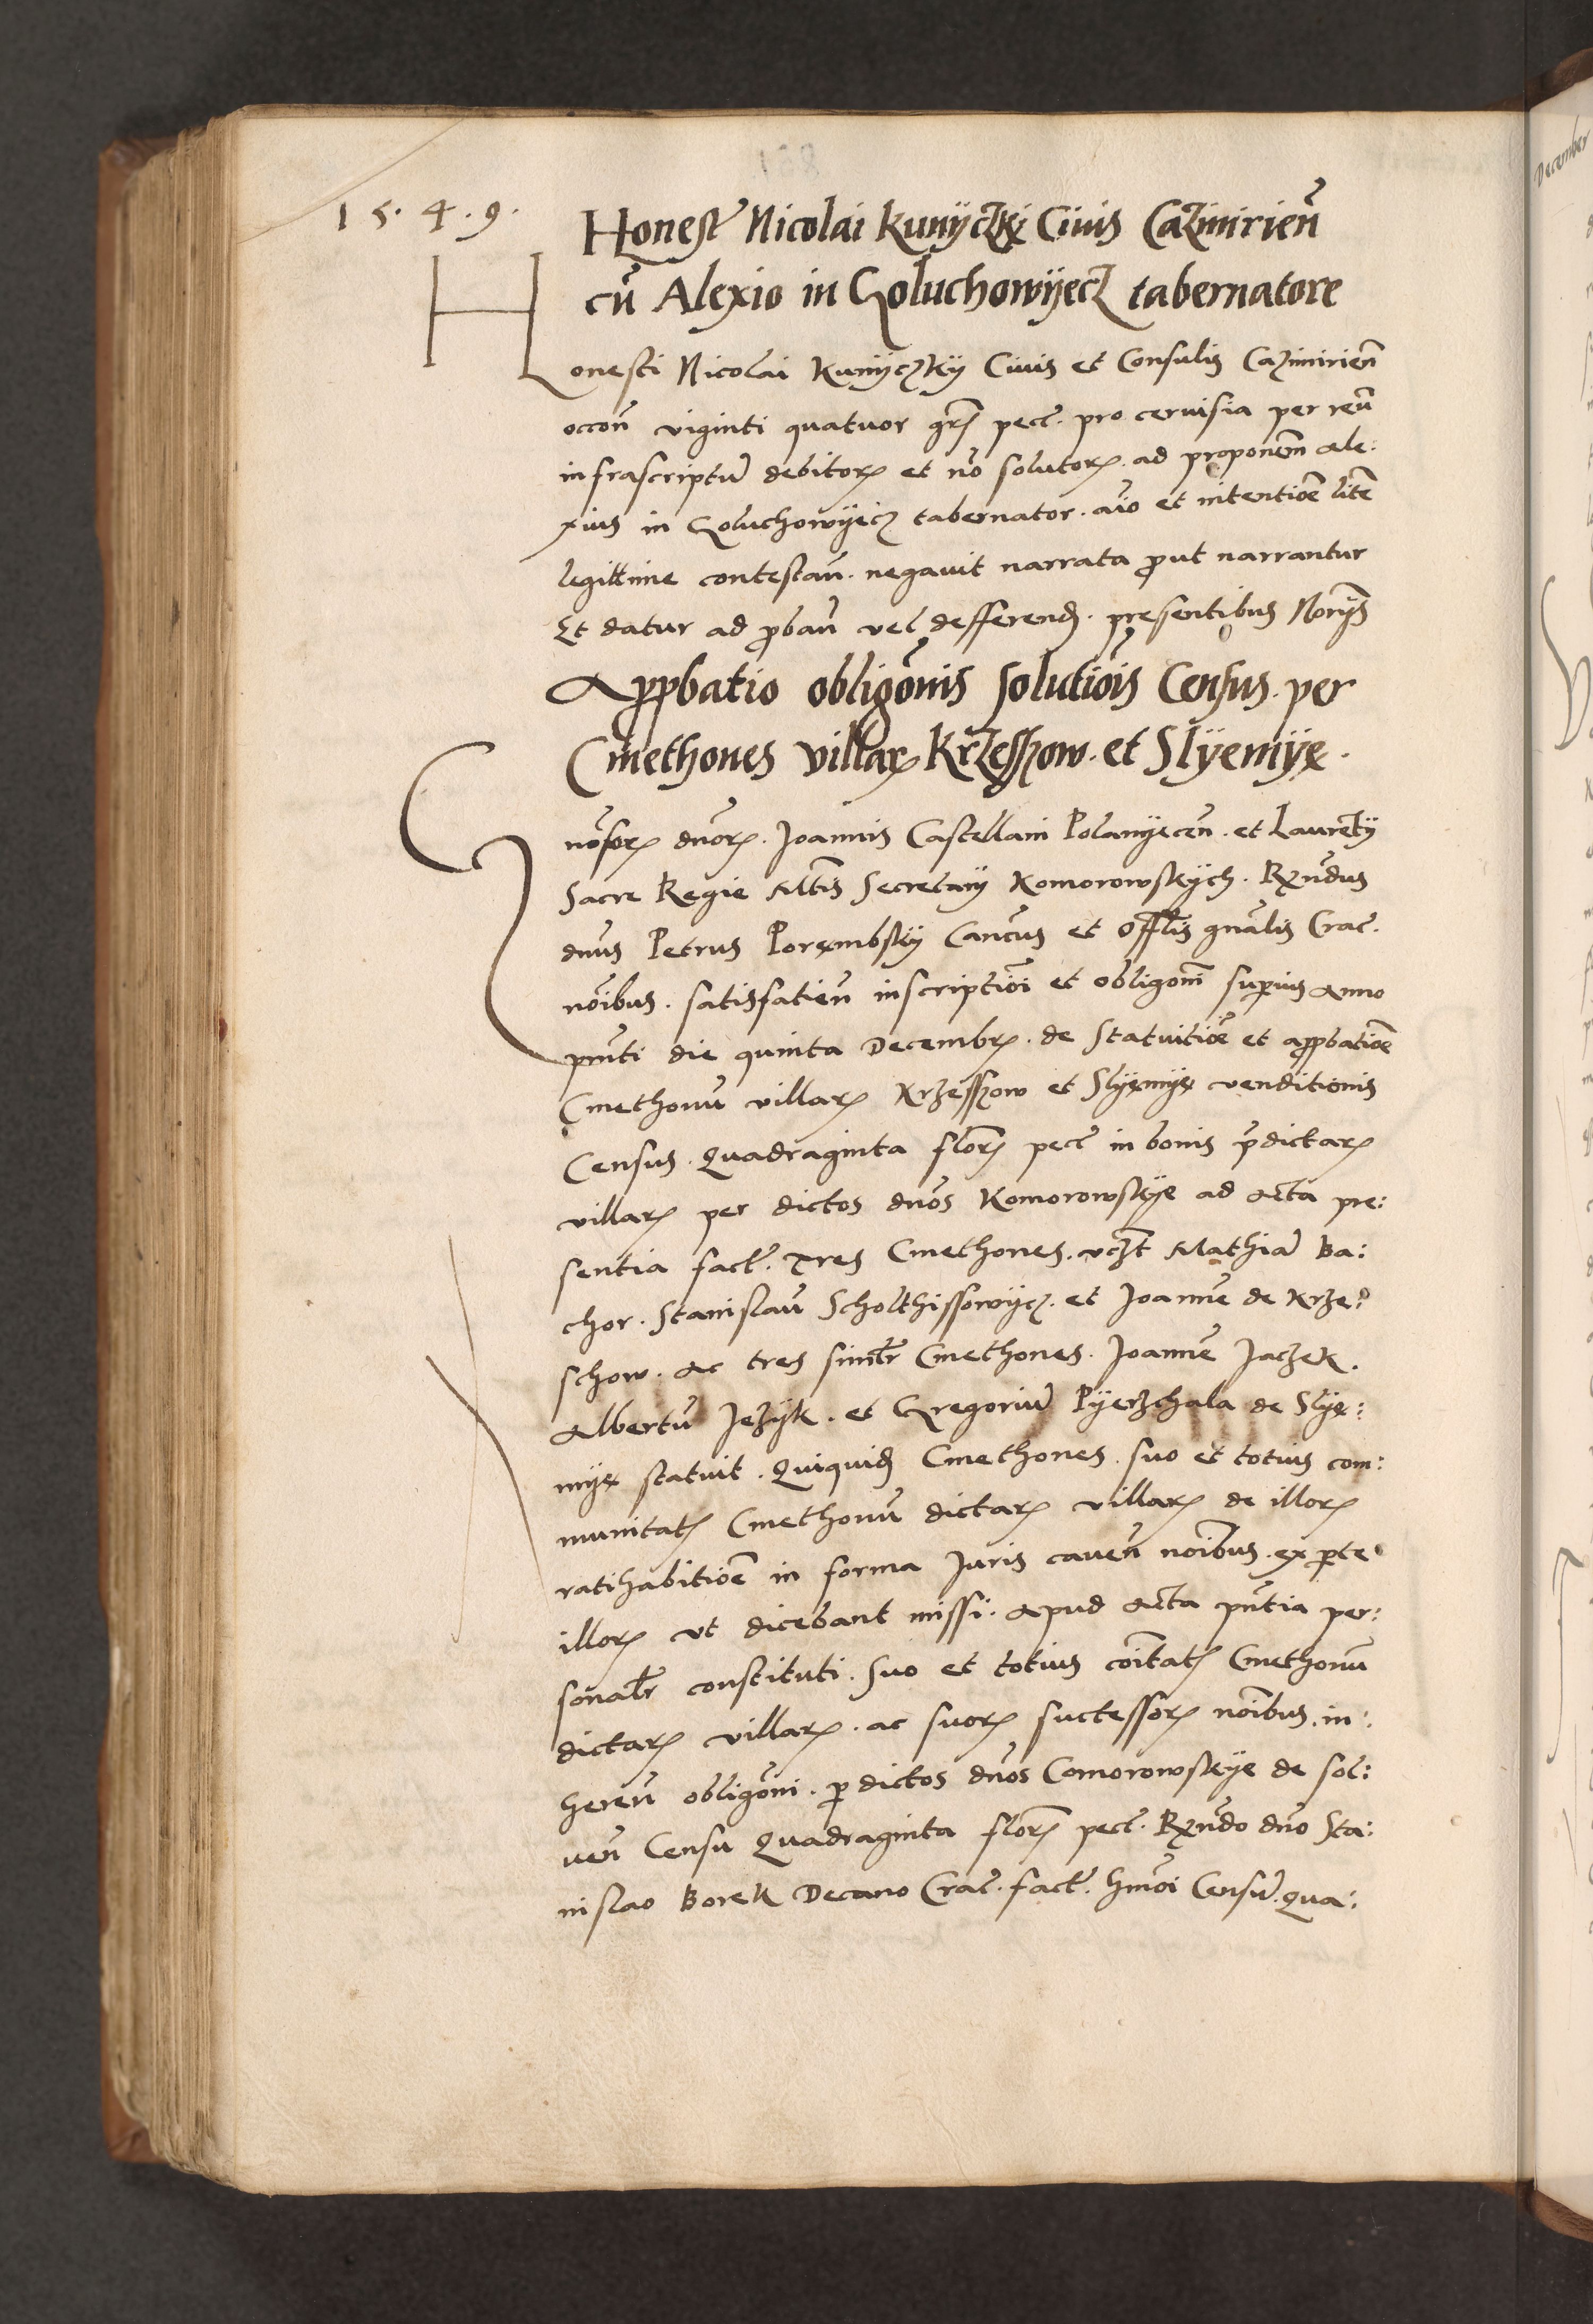 1 5. 4. 9.
Honest Nicolai Kunÿczkj Ciuis Cazimirień
cū Alexio in Goluchowÿecz tabernatore
Honesti Nicolai Kunÿczkÿ Ciuis et Consulis Cazimirień
occoń viginti quatuor grs pecᵗ. pro ceruisia per reū
infrascriptū debitorꝝ et nō solutorꝝ. ad proponem̄ Ale:
xius in Goluchowÿecz tabernator. aīo et intentiōe litē
legittime contestań. negauit narrata ꝓut narrantur
Et datur ad ꝓbań vel defferend. presentibus Norÿs
Apꝓbatio obligōnis solutiōis Census. per
Cmethones villarꝝ Krzesszow. et Slÿemÿe.
Gnōsorꝝ dnōrꝝ. Joannis Castellani Polanÿeceń. et Laurentÿ
Sacre Regie Mtis Secretarÿ Komorowskÿch. Rxndus
dnus Petrus Porembskÿ Cancus et Offlis gnālis Crac.
nōibus. satisfatień inscriptiōi et obligōni supius Anno
pnti die quinta Decembrꝭ. de Statuitiōe et apꝓbatiōe
Cmethonū villarꝝ Krzesszow et Slÿemÿe venditionis
Census. Quadraginta florꝭ pecᵗ in bonis p̄dictarꝝ
villarꝝ per dictos dnōs Komorowskÿe ad Acta pre:
sentia facᵗ. Tres Cmethones. vczt Mathiā Ba:
chor. Stanislaū Scholthissowÿcz. et Joannē de Krze:
schow. Ac tres simltr Cmethones. Joannē Jaczek.
Albertū Jezÿk. et Gregoriū Pÿerzchala de Slÿe:
mÿe statuit. Quiquid Cmethones. suo et totius com:
munitatꝭ Cmethonū dictarꝝ villarꝝ de illorꝝ
ratihabitiōe in forma Juris caueń nōibus. ex ꝑte
illorꝝ vt dicebant missi. Apud Acta pn̄tia per:
sonaltr constituti. Suo et totius cōitatꝭ Cmethonū
dictarꝝ villarꝝ. ac suorꝝ successorꝝ nōibus. in:
hereń obligōni. ꝑ dictos dnōs Comorowskÿe de sol:
ueń Censu Quadraginta florꝭ pecᵗ. Rxndo dnō Sta:
nislao Borek Decano Crac. facᵗ. hmōi Censū. qua:
December